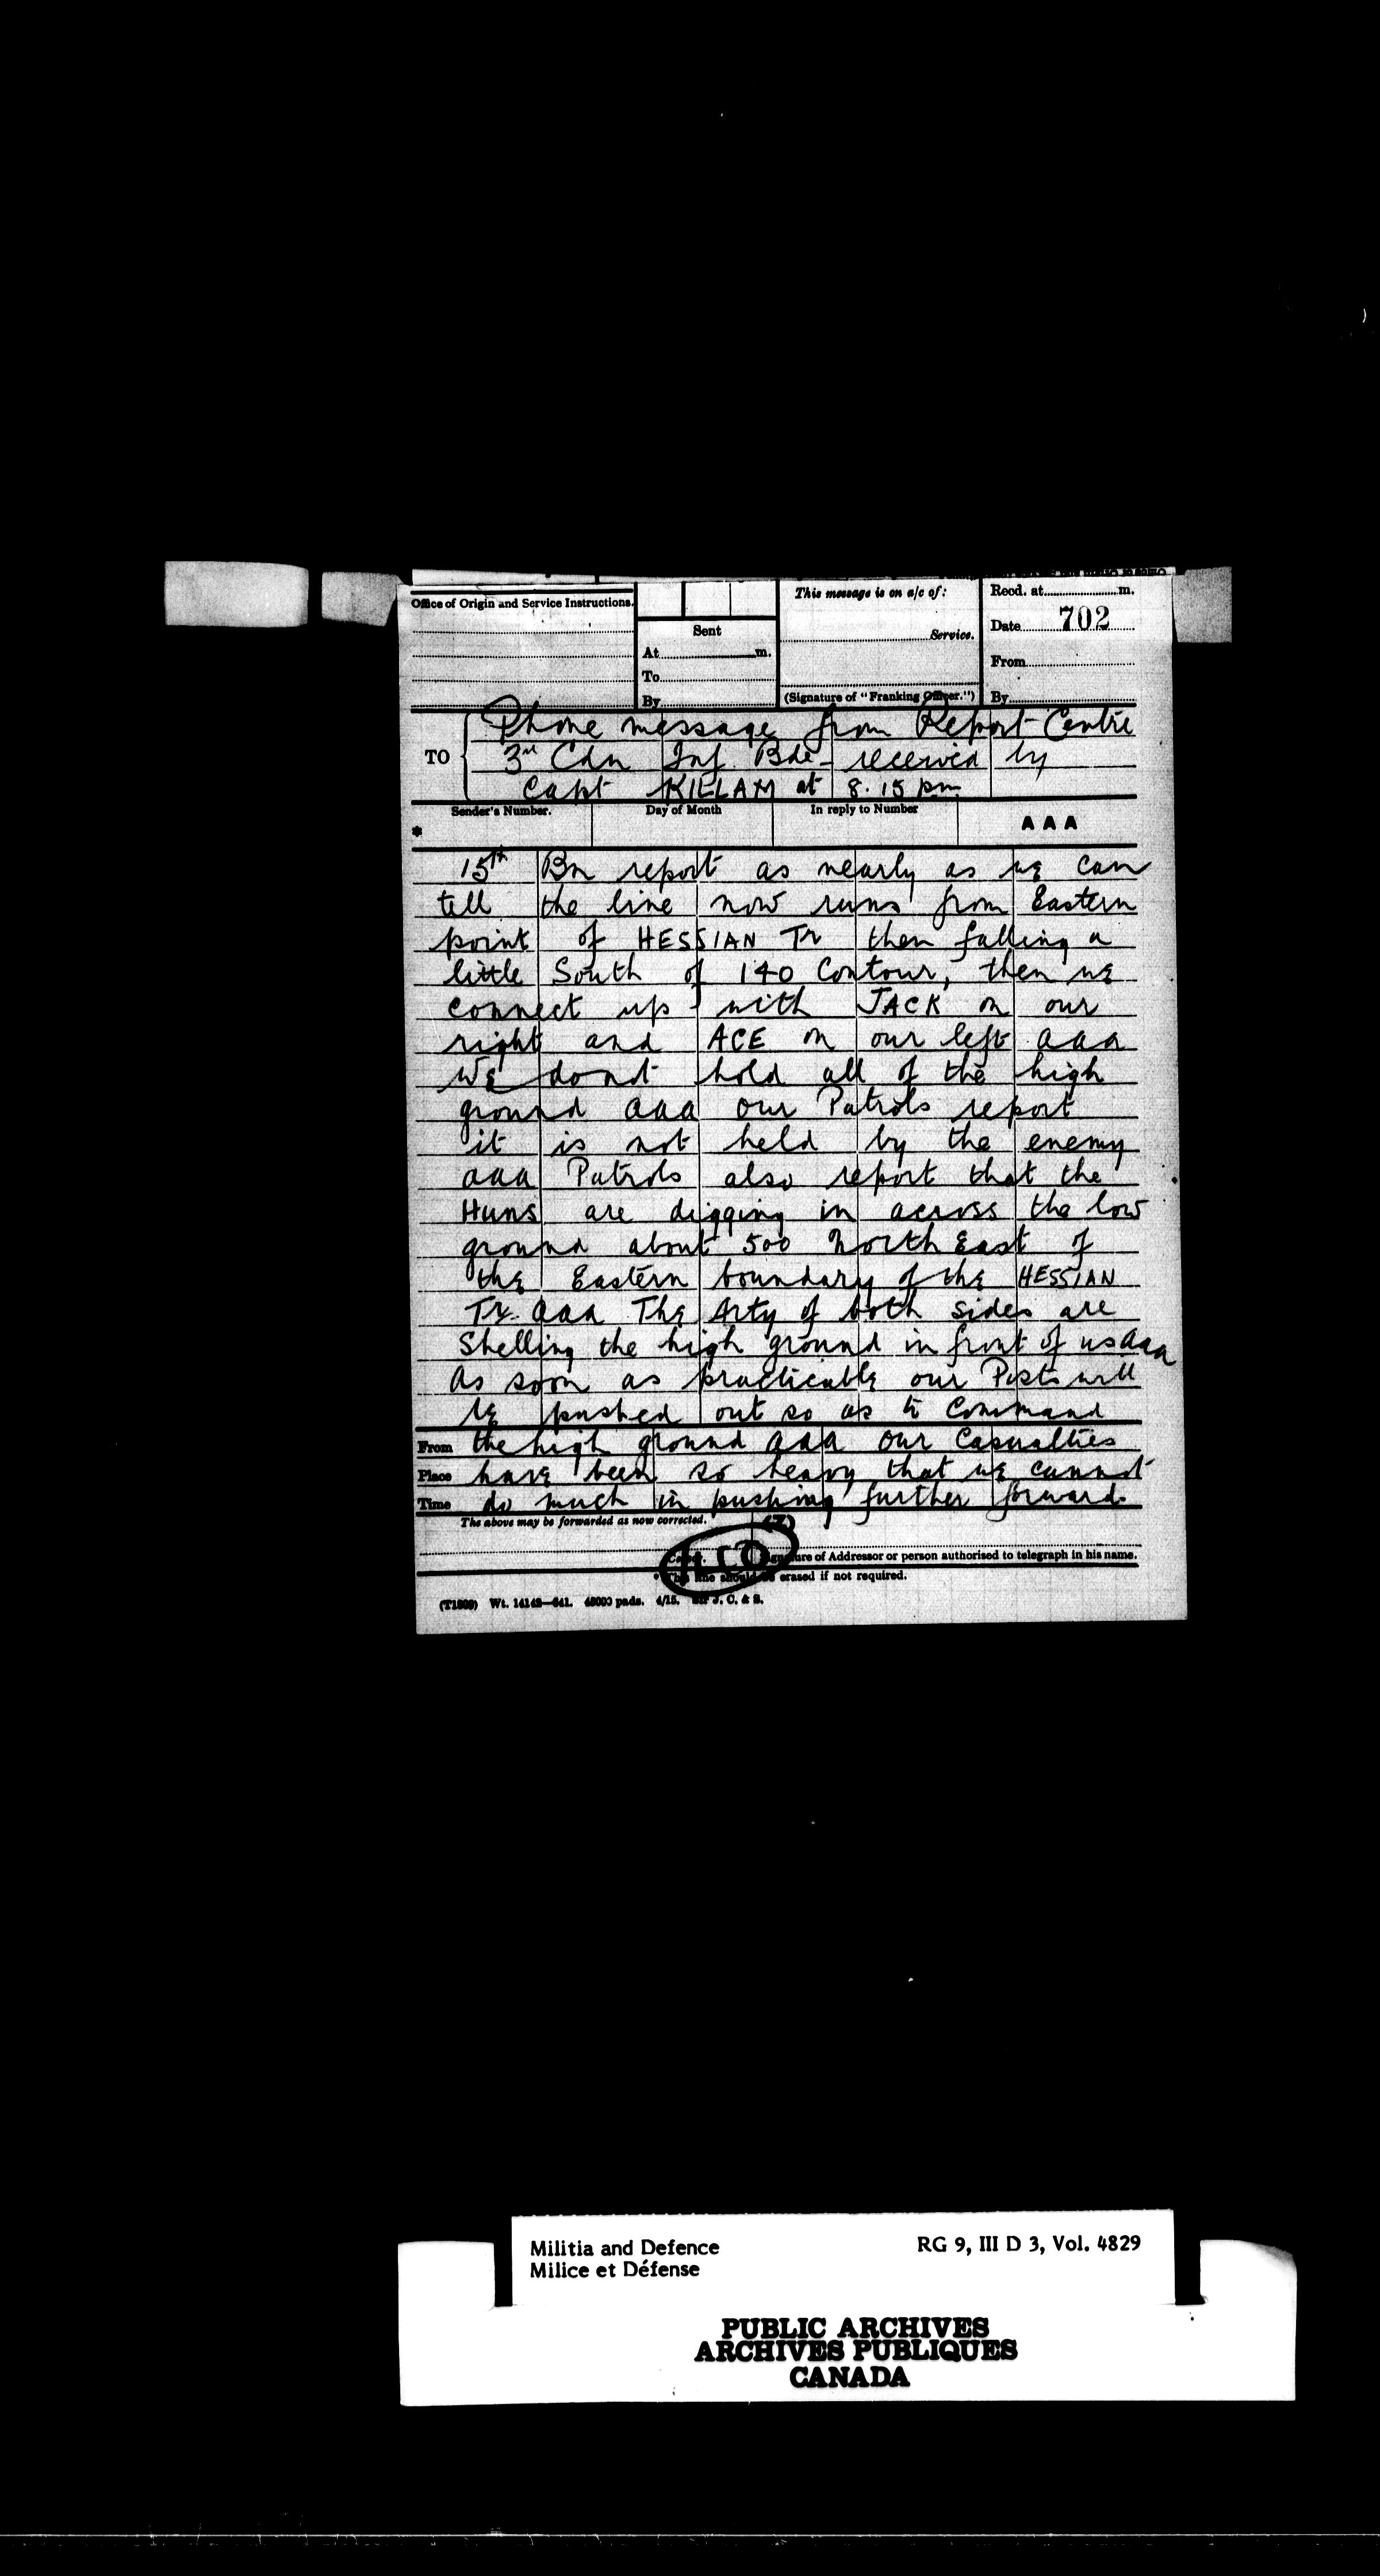 Office of Origin and Service Instructions.
Sent
At m.
To
By
This message is on a/c of:
Service.
(Signature of "Franking Officer.")
Recd. at m.
Date 702
From
By
TO
Phone message from Report Centre
3rd Cdn Inf. Bde received by
Capt KILLAM at 8.15 pm
Sender's Number. Day of Month In reply to Number
* AAA
15th Bn report as nearly as we can
tell the line now runs from Eastern
point of HESSIAN Tr then falling a
little South of 140 Contour, then we
connect up with JACK on our
right and ACE on our left aaa
We dont hold all of the high
ground aaa our Patrols report
it is not held by the enemy
aaa Patrols also report that the
Huns are digging in across the low
ground about 500 North East of
the Eastern boundary of the HESSIAN
Tr. aaa The Arty of both sides are
Shelling the high ground in front of us aaa
As soon as practicable our Posts will
be pushed out so as to Command
From the high ground aaa our Casualties
Place have been so heavy that we cannot
Time do much in pushing further forward.
The above may be forwarded as now corrected. (Z)
Censor. Signature of Addressor or person authorised to telegraph in his name.
* This line should be erased if not required.
(T1309) Wt. 14142—641. 48000 pads. 4/15. Sir J. C. & S.
Militia and Defence
Milice et Défense
RG 9, III D 3, Vol. 4829
PUBLIC ARCHIVES
ARCHIVES PUBLIQUES
CANADA